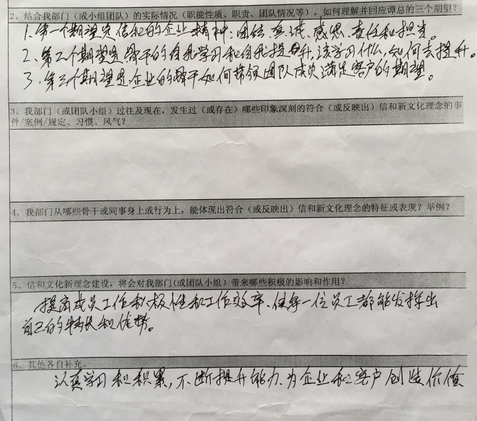 2、结合我部门（或小组团队）的实际情况（职能性质、职责、团队情况等），如何理解并回应谭总的三个期望？
1.第一个期望是信和的企业精神：团结、真诚、感恩、责任和担当。
2、第二个期望是骨干的自我学习和自我提升，该学习什么，如何去提升。
3.第三个期望是企业的骨干如何带领团队成员满足客户的期望。
3、我部门（或团队小组）过往及现在，发生过（或存在）哪些印象深刻的符合（或反映出）信和新文化理念的事
件/案例/规定、习惯、风气？
4、我部门从哪些骨干或同事身上或行为上，能体现出符合（或反映出）信和新文化理念的特征或表现？举例？
5、信和文化新理念建设，将会对我部门(或团队小组）带来哪些积极的影响和作用？
提高成员工作积极性和工作效率、使每一位员工都能发挥出
自己的特长和优势。
6、其他各自补充
认真学习和积累，不断提升能力，为企业和客户创造价值